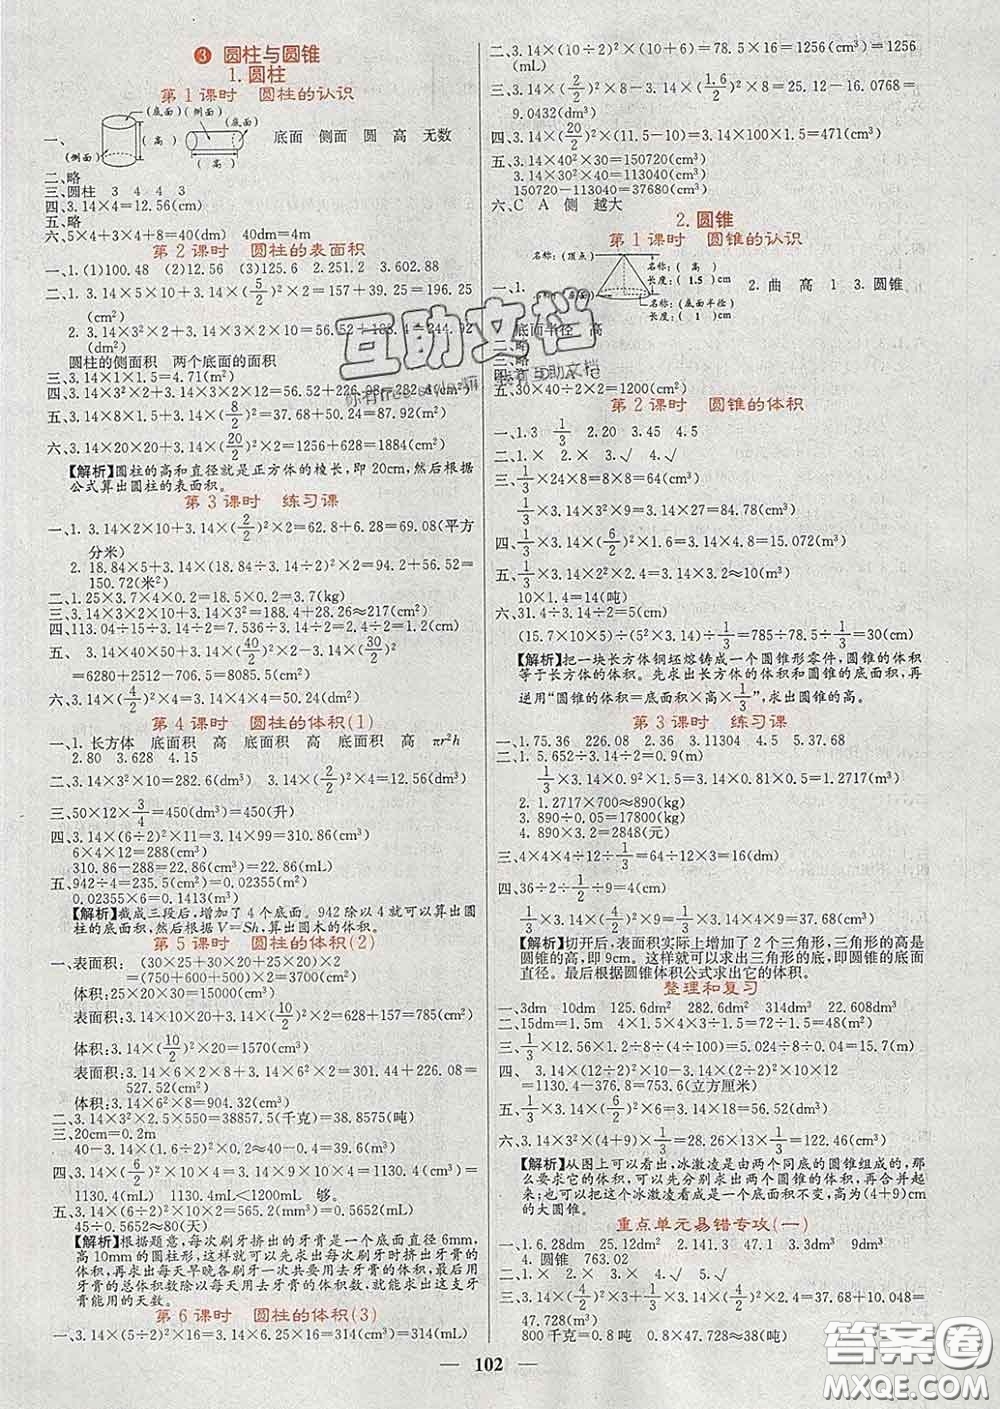 ③ 圆柱与圆锥
1. 圆柱
第 1 课时 圆柱的认识
一、(底面) (侧面) (高) (侧面) (底面) (高) 底面 侧面 圆 高 无数
二、略
三、圆柱 3 4 4 3
四、3.14×4=12.56(cm)
五、略
六、5×4+3×4+8=40(dm) 40dm=4m
第 2 课时 圆柱的表面积
一、1. (1)100.48 (2)12.56 (3)125.6 2. 251.2 3. 602.88
二、1. 3.14×5×10+3.14×(5/2)²×2=157+39.25=196.25
(cm²)
2. 3.14×3²×2+3.14×3×2×10
(dm²)
圆柱的侧面积 两个底面的面积
三、3.14×1×1.5=4.71(m²)
四、3.14×3²×2+3.14×3×2×12=56.52+226.08=282.6(cm²)
五、3.14×8×1.5+3.14×(8/2)²=37.68+50.24=87.92(m²)
六、3.14×20×20+3.14×(20/2)²×2=1256+628=1884(cm²)
【解析】圆柱的高和直径就是正方体的棱长,即 20cm,然后根据
公式算出圆柱的表面积。
第 3 课时 练习课
一、1. 3.14×2×10+3.14×(2/2)²×2=62.8+6.28=69.08(平方
分米)
2. 18.84×5+3.14×(18.84÷3.14÷2)²×2=94.2+56.52=
150.72(米²)
二、1.25×3.7×4×0.2=18.5×0.2=3.7(kg)
三、3.14×3×2×10+3.14×3²=188.4+28.26≈217(cm²)
四、113.04÷15÷3.14÷2=7.536÷3.14÷2=2.4÷2=1.2(cm)
五、3.14×40×50+3.14×(40/2)²×2-3.14×(30/2)²
=6280+2512-706.5=8085.5(cm²)
六、3.14×(4/2)²×4=3.14×4×4=50.24(dm²)
第 4 课时 圆柱的体积(1)
一、1. 长方体 底面积 高 底面积 高 底面积 高 πr²h
2. 80 3. 628 4. 15
二、3.14×3²×10=282.6(dm³) 3.14×(2/2)²×4=12.56(dm³)
三、50×12×3/4=450(dm³)=450(升)
四、3.14×(6÷2)²×11=3.14×99=310.86(cm³)
6×4×12=288(cm³)
310.86-288=22.86(cm³)=22.86(mL)
五、942÷4=235.5(cm²)=0.02355(m²)
0.02355×6=0.1413(m³)
【解析】截成三段后,增加了 4 个底面。942 除以 4 就可以算出圆
柱的底面积,然后根据 V=Sh,算出圆木的体积。
第 5 课时 圆柱的体积(2)
一、表面积: (30×25+30×20+25×20)×2
=(750+600+500)×2=3700(cm²)
体积:25×20×30=15000(cm³)
表面积:3.14×10×20+3.14×(10/2)²×2=628+157=785(cm²)
体积:3.14×(10/2)²×20=1570(cm³)
表面积:3.14×6×2×8+3.14×6²×2=301.44+226.08=
527.52(cm²)
体积:3.14×6²×8=904.32(cm³)
二、3.14×3²×2.5×550=38857.5(千克)=38.8575(吨)
三、20cm=0.2m
40-3.14×(6÷2)²×0.2≈40-5.65≈34(m³)
四、3.14×(6/2)²×10×4=3.14×90×4=1130.4(cm³)=
1130.4(mL) 1130.4mL<1200mL 够。
五、3.14×(6÷2)²×10×2=565.2(mm³)=0.5652(cm³)
45÷0.5652≈80(天)
【解析】根据题意,每次刷牙挤出的牙膏是一个底面直径6mm,
高10mm的圆柱形,这样就可以先求出每次刷牙时挤出牙膏的
体积,再求出每天早晚各刷一次共要用去牙膏的体积,最后用
牙膏的总体积数除以每天用去牙膏的体积数,就能求出这支牙
膏能用的天数。
第 6 课时 圆柱的体积(3)
一、3.14×(5÷2)²×16=3.14×6.25×16=314(cm³)=314(mL)
二、3.14×(10÷2)²×(6+10)=78.5×16=1256(cm³)=1256
(mL)
三、3.14×(2/2)²×8-3.14×(1.6/2)²×8=25.12-16.0768=
9.0432(dm³)
四、3.14×(20/2)²×(11.5-10)=3.14×100×1.5=471(cm³)
五、3.14×40²×30=150720(cm³)
3.14×30²×40=113040(cm³)
150720-113040=37680(cm³)
六、C A 侧 越大
2. 圆锥
第 1 课时 圆锥的认识
一、1. 名称:(顶点) 名称:(高) 长度:(1.5)cm (底面) 名称:(底面半径) 长度:(1)cm 2. 曲 高 1 3. 圆锥
4. 底面半径 高
二、略
三、略
五、30×40÷2×2=1200(cm²)
第 2 课时 圆锥的体积
一、1. 3 1/3 2. 20 3. 45 4. 5
二、1. × 2. × 3. √ 4. √
三、1/3×24×8=8×8=64(cm³)
1/3×3.14×3²×9=3.14×27=84.78(cm³)
四、1/3×3.14×(6/2)²×1.6=3.14×4.8=15.072(m³)
五、1/3×3.14×2²×2.4=3.14×3.2≈10(m³)
10×1.4=14(吨)
六、31.4÷3.14÷2=5(cm)
(15.7×10×5)÷(5²×3.14)÷1/3=785÷78.5÷1/3=30(cm)
【解析】把一块长方体钢坯熔铸成一个圆锥形零件,圆锥的体积
等于长方体的体积。先求出长方体的体积和圆锥的底面积,再
逆用“圆锥的体积=底面积×高×1/3”,求出圆锥的高。
第 3 课时 练习课
一、1. 75.36 226.08 2. 36 3. 11304 4. 5 5. 37.68
二、1. 1.5÷5×3=0.3×3=0.9(m)
1/3×3.14×0.9²×1.5=3.14×0.81×0.5=1.2717(m³)
2. 1.2717×700≈890(kg)
3. 890÷0.05=17800(kg)
4. 890×3.2=2848(元)
三、4×4×4÷12÷1/3=64÷12×3=16(dm)
四、36÷2÷1/2÷9=4(cm)
1/3×3.14×(4/2)²×9=1/3×3.14×4×9=37.68(cm³)
【解析】切开后,表面积实际上增加了 2 个三角形,三角形的高是
圆锥的高,即 9cm。这样就可以求出三角形的底,即圆锥的底面
直径。最后根据圆锥体积公式求出它的体积。
整理和复习
一、3dm 10dm 125.6dm² 282.6dm² 314dm³ 30dm³
二、15dm=1.5m 4×1.5×4×3÷1.5=72÷1.5=48(m²)
三、1/3×12.56×1.2÷8÷(5÷100)=5.024÷8÷0.05=12.56(m)
四、3.14×(12÷2)²×10-3.14×(2÷2)²×10×12
=1130.4-376.8=753.6(立方厘米)
五、1/3×3.14×(6/2)²×6=3.14×18=56.52(dm³)
六、3.14×3²×(4+9)×1/3=28.26×13×1/3=122.46(cm³)
【解析】从图上可以看出,冰激凌是由两个同底的圆锥组成的,那
么要求它的体积,可以先分别求出两个圆锥的体积,再合并起
来;也可以把这个冰激凌看成是一个底面积不变,高为(4+9)cm
的大圆锥。
重点单元易错专攻(一)
一、1. 6.28dm 25.12dm² 2. 141.3 47.1 3. 9dm³ 3dm³
4. 圆锥 763.02
二、1. × 2. × 3. × 4. √ 5. √
三、3.14×(4/2)²×3+1/3×3.14×(4/2)²×2.4=37.68+10.048=
47.728(m³)
800 千克=0.8 吨 0.8×47.728≈38(吨)
102
互助文档
答案圈
MXQE.COM